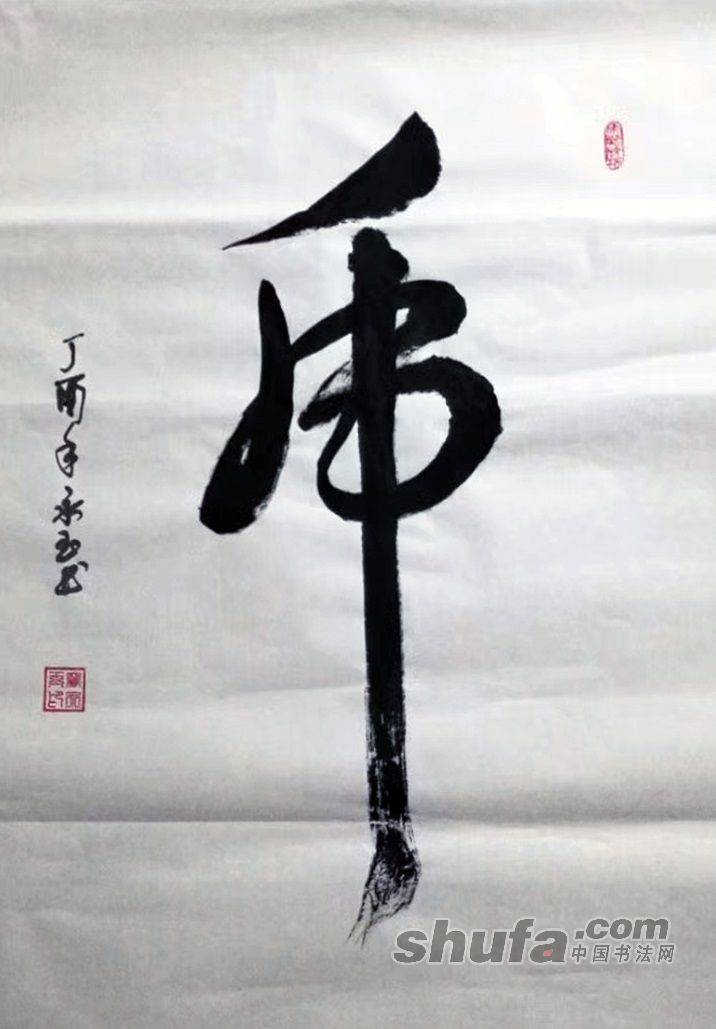 虎
丁酉年永玉书
shufa.com
中国书法网